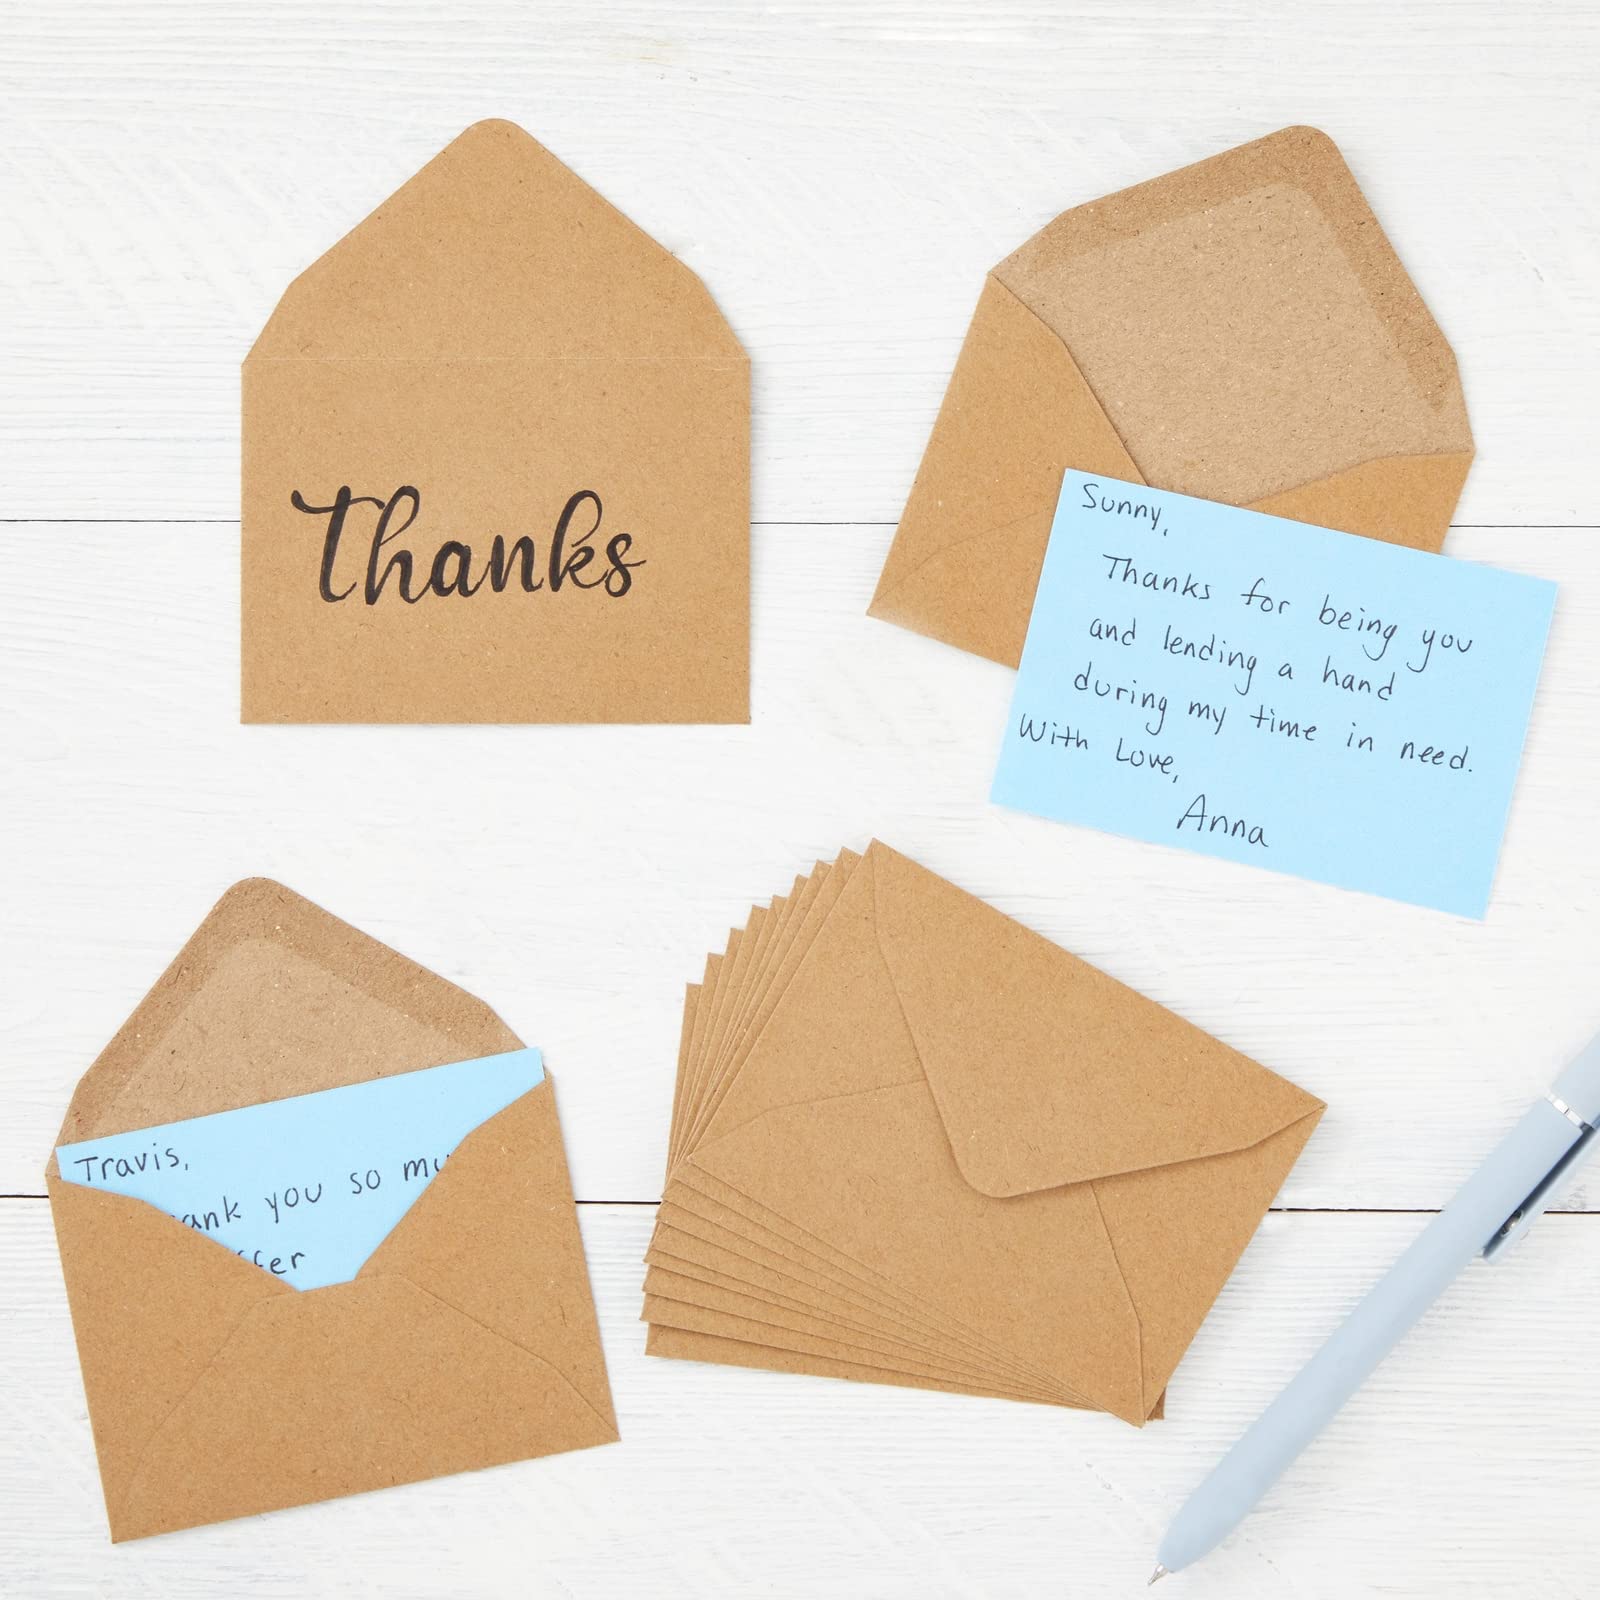 Thanks
Sunny,
Thanks for being you
and lending a hand
during my time in need.
With Love,
Anna
Travis,
you so